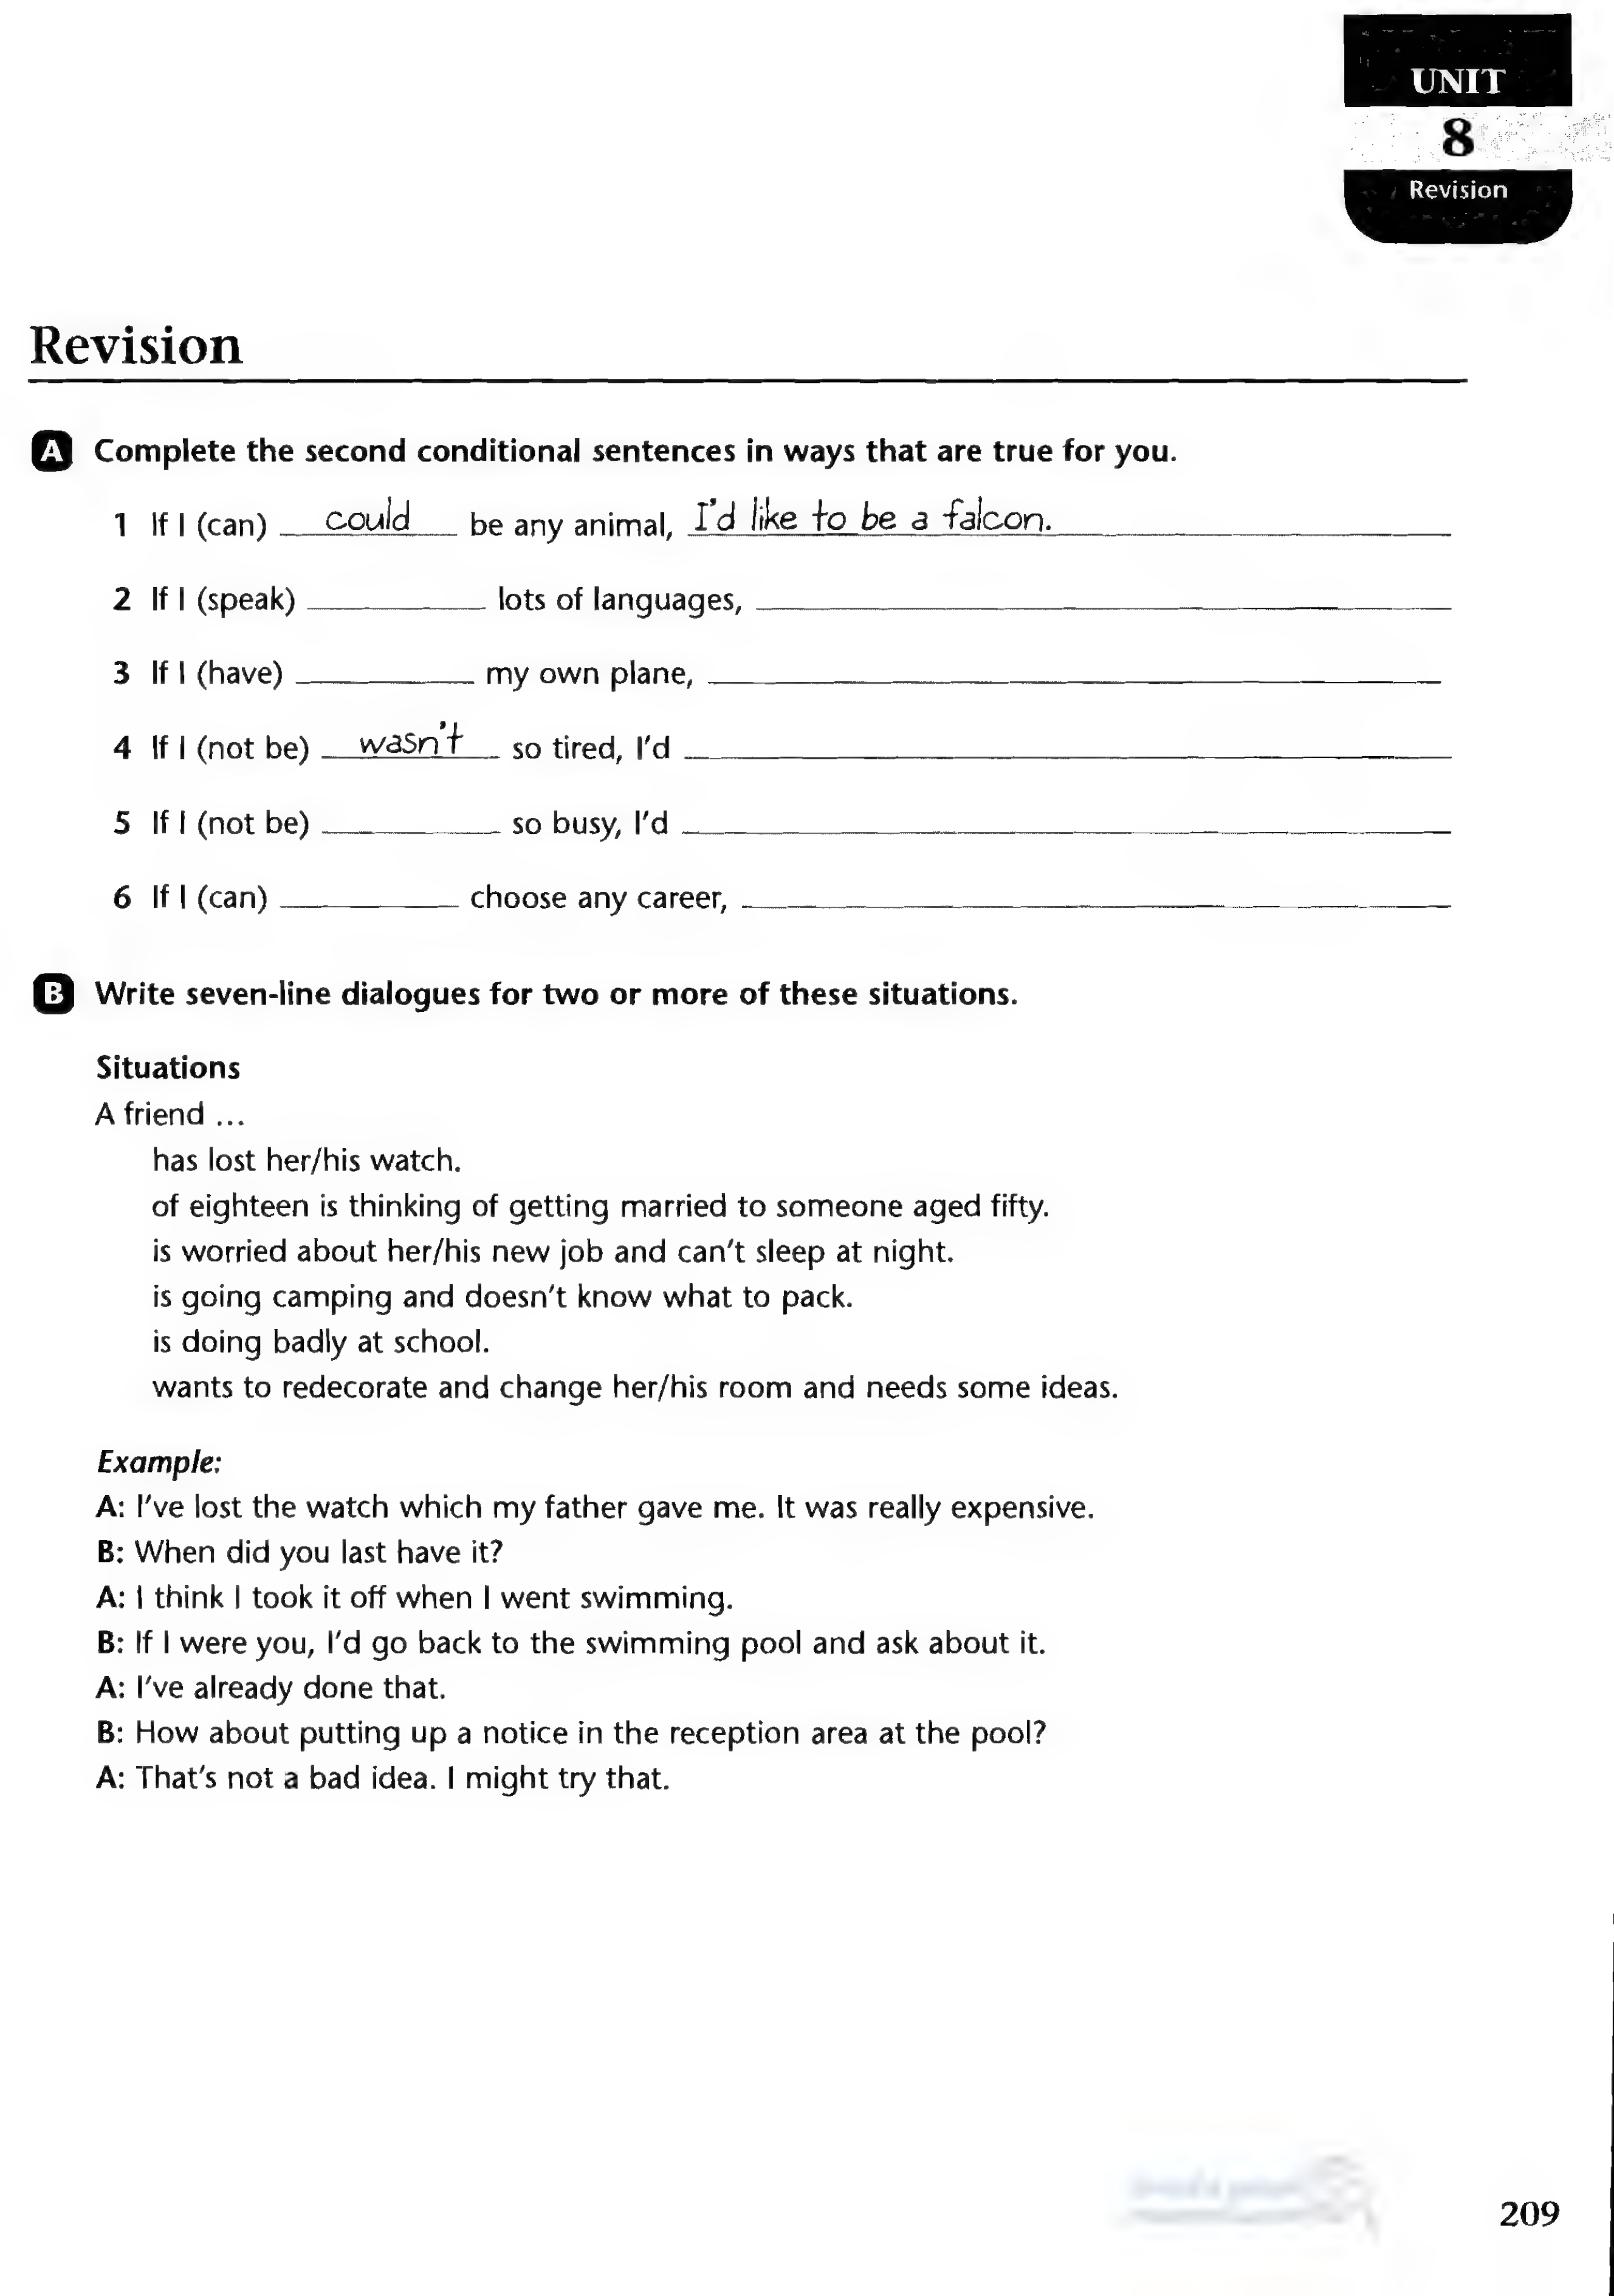 UNIT
8
Revision
Revision
A Complete the second conditional sentences in ways that are true for you.
1 If I (can) could be any animal, I'd like to be a falcon.
2 If I (speak) ________ lots of languages, ________
3 If I (have) ________ my own plane, ________
4 If I (not be) wasn't so tired, I'd ________
5 If I (not be) ________ so busy, I'd ________
6 If I (can) ________ choose any career, ________
B Write seven-line dialogues for two or more of these situations.
Situations
A friend ...
has lost her/his watch.
of eighteen is thinking of getting married to someone aged fifty.
is worried about her/his new job and can't sleep at night.
is going camping and doesn't know what to pack.
is doing badly at school.
wants to redecorate and change her/his room and needs some ideas.
Example:
A: I've lost the watch which my father gave me. It was really expensive.
B: When did you last have it?
A: I think I took it off when I went swimming.
B: If I were you, I'd go back to the swimming pool and ask about it.
A: I've already done that.
B: How about putting up a notice in the reception area at the pool?
A: That's not a bad idea. I might try that.
209